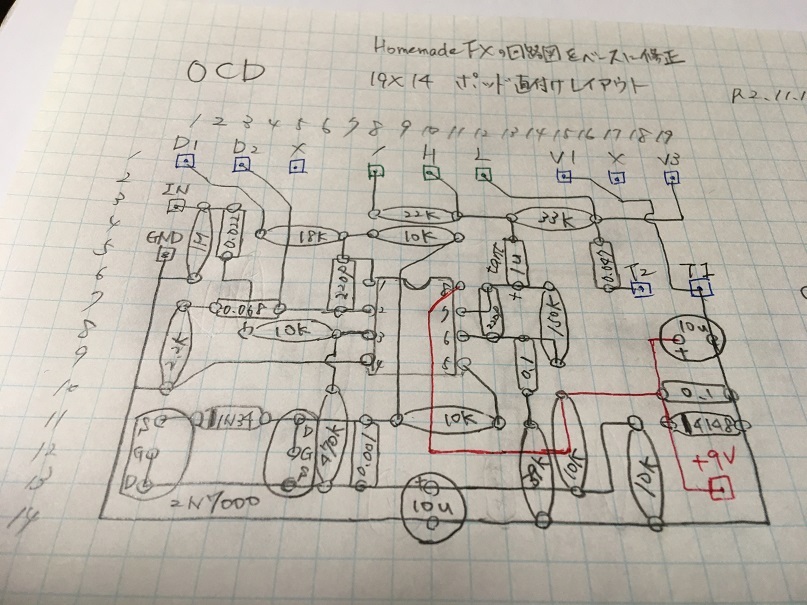 Homemade FXの回路図をベースに修正
OCD
19×14 ポッド直付けレイアウト
R2.11.1
1 2 3 4 5 6 7 8 9 10 11 12 13 14 15 16 17 18 19
D1 D2 X H L V1 X V3
1
2
3
IN
4
22K 33K
5
GND 1M 0.022 18K 10K
6
T2 T1
7
0.068
8
10K 10u
9
2.2K
10
0.1 0.1
11
S 1N34 10K 4148
12
G G 470K 10K 10K +9V
13
D
2N7000 10u
14